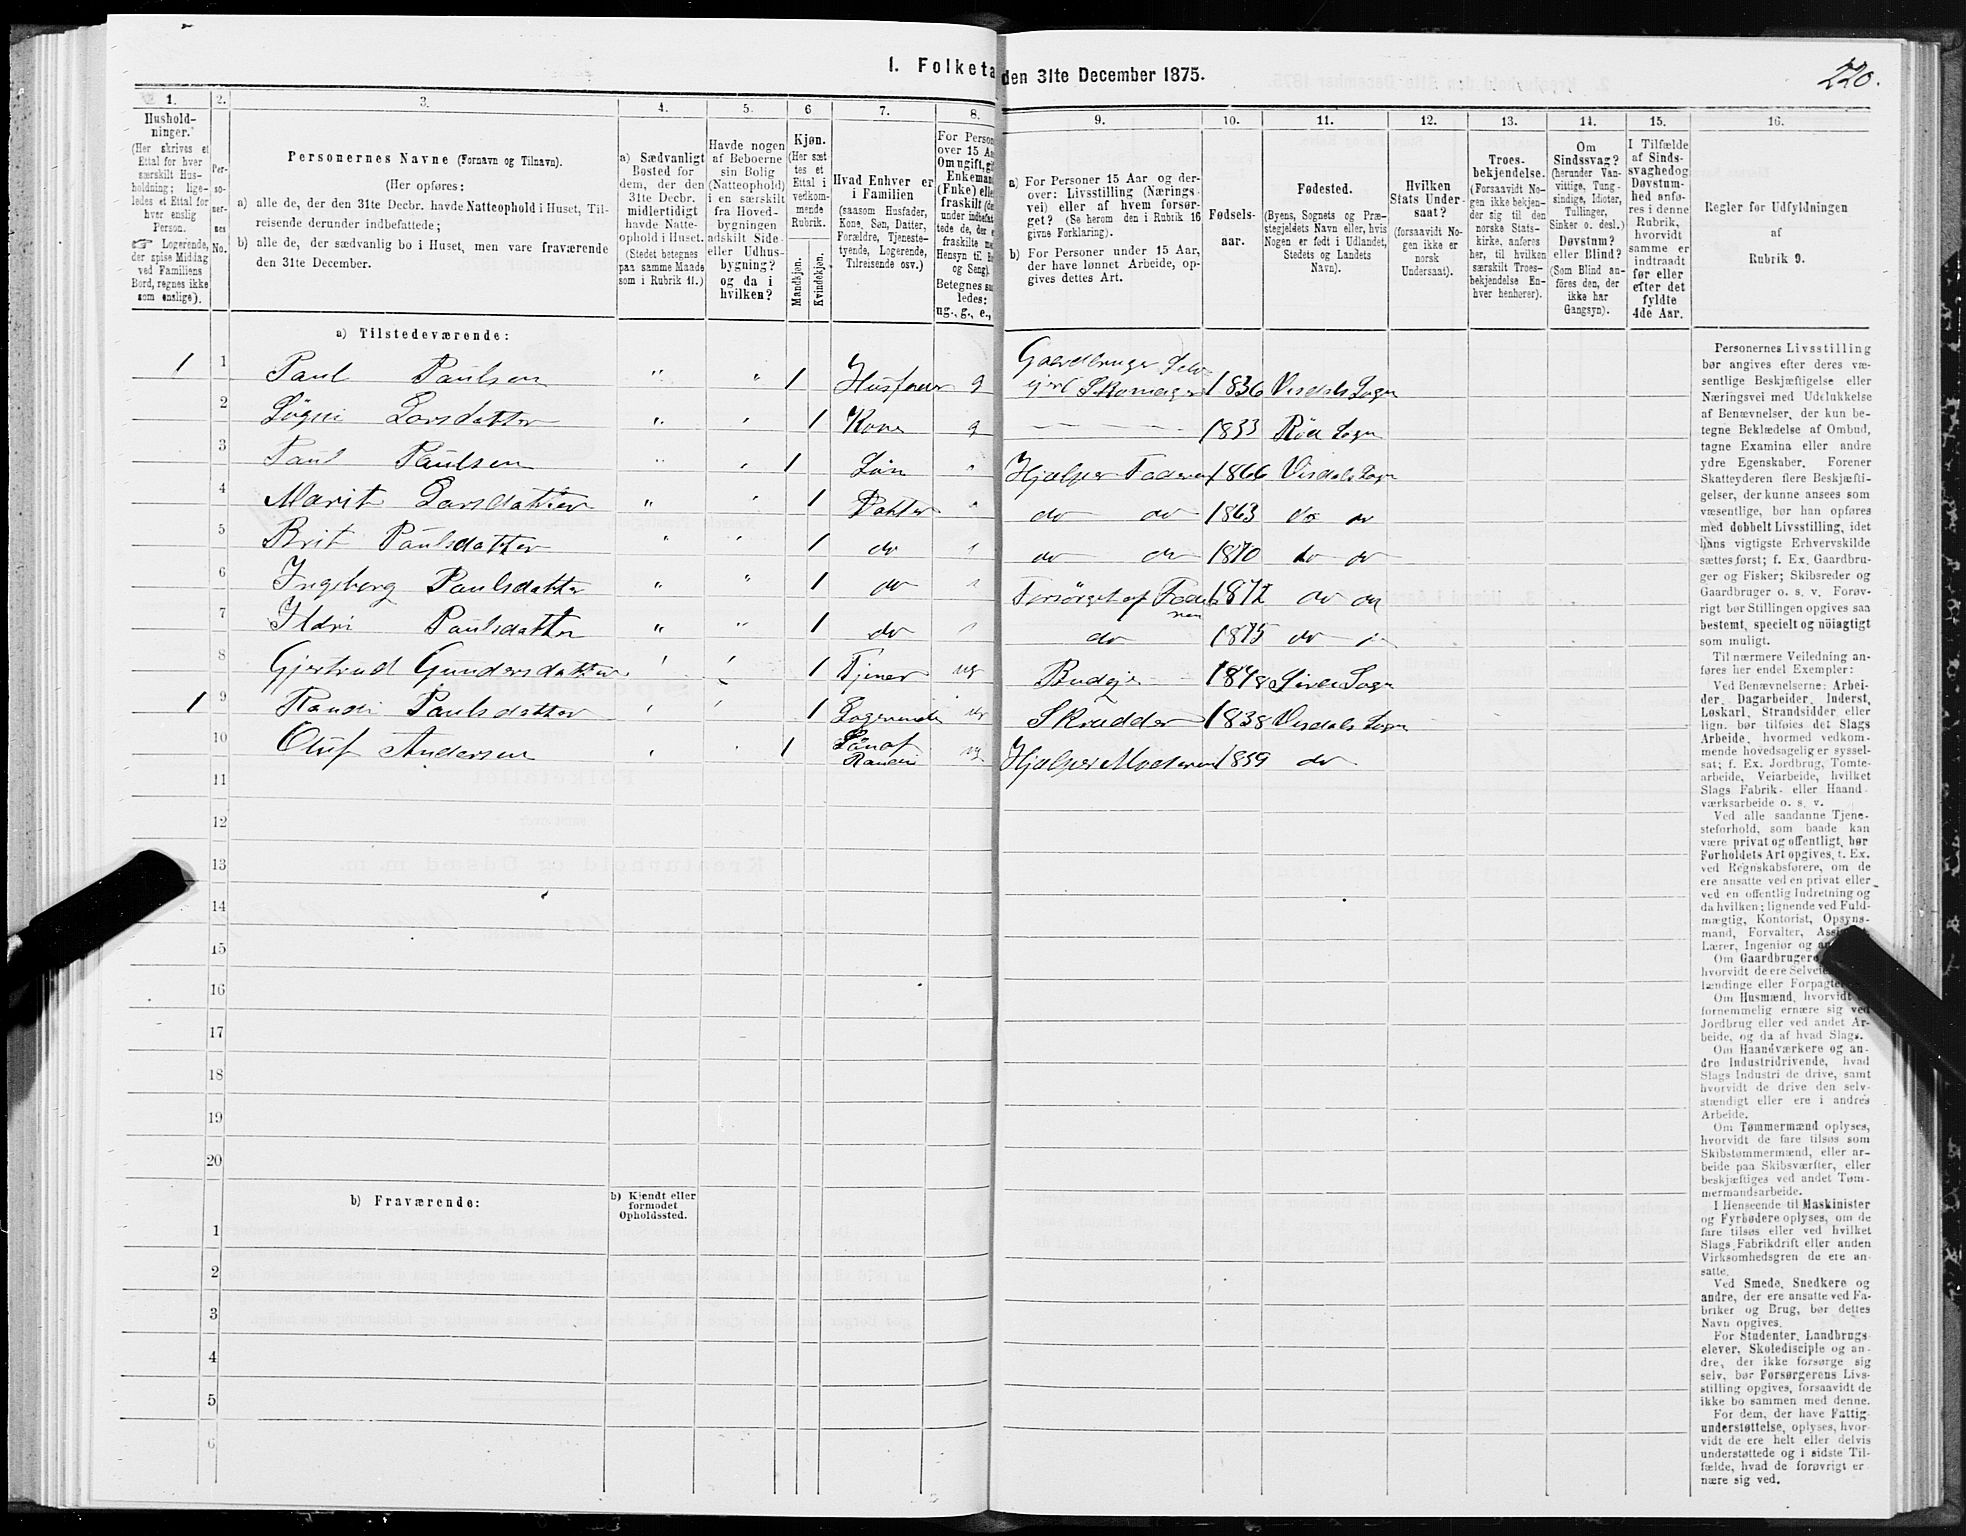 I. Folketa den 31te December 1875.
220.
1. 2. 3. 4. 5. 6 7. 8. 9. 10. 11. 12. 13. 14. 15. 16.
Hushold-
ninger.
(Her skrives et
Ettal for hver
særskilt Hus-
holdning; lige-
ledes et Ettal for
hver enslig
Person.
☞ Logerende,
der spise Middag
ved Familiens
Bord, regnes ikke
som enslige).
Per-
so-
ner-
nes
No.
Personernes Navne (Fornavn og Tilnavn).
(Her opføres:
a) alle de, der den 31te Decbr. havde Natteophold i Huset, Til-
reisende derunder indbefattede;
b) alle de, der sædvanlig bo i Huset, men vare fraværende
den 31te December.
a) Sædvanligt
Bosted for
dem, der den
31te Decbr.
midlertidigt
havde Natte-
ophold i Huset.
(Stedet betegnes
paa samme Maade
som i Rubrik 11.)
Havde nogen
af Beboerne
sin Bolig
(Natteophold)
i en særskilt
fra Hoved-
bygningen
adskilt Side-
eller Udhus-
bygning?
og da i
hvilken?
Kjøn.
(Her sæt
tes et
Ettal i
vedkom-
mende
Rubrik.
Mandkjøn.
Kvindekjøn.
Hvad Enhver er
i Familien
(saasom Husfader,
Kone, Søn, Datter,
Forældre, Tjeneste-
tyende, Logerende,
Tilreisende osv.)
For Person
over 15 Aa
Om ugift, gi
Enkeman
(Enke) elle
fraskilt (de
under indbefat
tede de, der e
fraskilte me
Hensyn til B
og Seng).
Betegnes saa
ledes:
ug., g., e.,
a) For Personer 15 Aar og der-
over: Livsstilling (Nærings-
vei) eller af hvem forsør-
get? (Se herom den i Rubrik 16
givne Forklaring).
b) For Personer under 15 Aar,
der have lønnet Arbeide, op-
gives dettes Art.
Fødsels-
aar.
Fødested.
(Byens, Sognets og Præ-
stegjeldets Navn eller, hvis
Nogen er født i Udlandet,
Stedets og Landets
Navn).
Hvilken
Stats Under-
saat?
(forsaavidt No-
gen ikke er
norsk
Undersaat).
Troes-
bekjendelse.
(Forsaavidt No-
gen ikke bekjen-
der sig til den
norske Stats-
kirke, anføres
her, til hvilken
særskilt Troes-
bekjendelse En-
hver henhører).
Om
Sindssvag?
(herunder Van-
vittige, Tung-
sindige, Idioter,
Tullinger,
Sinker o. desl.)
Døvstum?
eller Blind?
(Som Blind an-
føres den, der
ikke har
Gangsyn).
I Tilfælde
af Sinds-
svaghed og
Døvstum-
hed anfø-
res i denne
Rubrik,
hvorvidt
samme er
indtraadt
før eller
efter det
fyldte
4de Aar.
Regler for Udfyldningen
af
Rubrik 9.
a) Tilstedeværende:
1 1 Paul Paulsen " " 1 Husfader g Gaardbruger Selv
ejer Skomager 1836 Visdals Sogn
2 Lørgni Larsdatter " " 1 Kone g — — — 1833 Rød Sogn
3 Paul Paulsen " " 1 Søn " Hjælper Faderen 1866 Visdals Sogn
4 Marit Larsdatter " " 1 Datter " do do 1863 do do
5 Brit Paulsdatter " " 1 do " do do 1870 do do
6 Ingeborg Paulsdatter " " 1 do " Forsørget af Fade
ren 1872 do do
7 Ildri Paulsdatter " " 1 do " do 1875 do "
8 Gjertrud Gundersdatter " " 1 Tjener ug Budeje 1848 Sogn
1 9 Randi Paulsdatter " " 1 Logerende ug Skrædder 1838 Visdals Sogn
10 Oluf Andersen " " 1 Søn af
Randi ug Hjælper Moderen 1859 do
11
12
13
14
15
16
17
18
19
20
b) Fraværende:
b) Kjendt eller
formodet
Opholdssted.
1
2
3
4
5
6
Personernes Livsstilling
bør angives efter deres væ-
sentlige Beskjæftigelse eller
Næringsvei med Udelukkelse
af Benævnelser, der kun be-
tegne Beklædelse af Ombud,
tagne Examina eller andre
ydre Egenskaber. Forener
Skatteyderen flere Beskjæfti-
gelser, der kunne ansees som
væsentlige, bør han opføres
med dobbelt Livsstilling, idet
hans vigtigste Erhvervskilde
sættes først; f. Ex. Gaardbru-
ger og Fisker; Skibsreder og
Gaardbruger o. s. v. Forøv-
rigt bør Stillingen opgives saa
bestemt, specielt og nöiagtigt
som muligt.
Til nærmere Veiledning an-
føres her endel Exempler:
Ved Benævnelserne: Arbei-
der, Dagarbeider, Inderst,
Løskarl, Strandsidder eller
lign. bør tilføies det Slags
Arbeide, hvormed vedkom-
mende hovedsagelig er syssel-
sat; f. Ex. Jordbrug, Tomte-
arbeide, Veiarbeide, hvilket
Slags Fabrik- eller Haand-
værksarbeide o. s. v.
Ved alle saadanne Tjene-
steforhold, som baade kan
være privat og offentligt, bør
Forholdets Art opgives, t. Ex.
ved Regnskabsførere, om de
ere ansatte ved en privat eller
ved en offentlig Indretning og
da hvilken; lignende ved Fuld-
mægtig, Kontorist, Opsyns-
mand, Forvalter,
Lærer, Ingeniør og
Om Gaardbrugere
hvorvidt de ere
lændinge eller
Om Husmænd, hvorvidt
fornemmelig ernære sig ved
Jordbrug eller ved andet Ar-
beide, og da af hvad Slags.
Om Haandværkere og an-
dre Industridrivende, hvad
Slags Industri de drive, samt
hvorvidt de drive den selv-
stændigt eller ere i andres
Arbeide.
Om Tømmermænd oplyses,
hvorvidt de fare tilsøs som
Skibstømmermænd, eller ar-
beide paa Skibsværfter, eller
beskjæftiges ved andet Tøm-
mermandsarbeide.
I Henseende til Maskinister
og Fyrbødere oplyses, om de
fare tilsøs eller ved hvilket
Slags Fabrikdrift eller anden
Virksomhedsgren de ere an-
satte.
Ved Smede, Snedkere og
andre, der ere ansatte ved Fa-
briker og Brug, bør dettes
Navn opgives.
For Studenter, Landbrugs-
elever, Skoledisciple og an-
dre, der ikke forsørge sig
selv, bør Forsørgerens Livs-
stilling opgives, forsaavidt de
ikke bo sammen med denne.
For dem, der have Fattig-
understøttelse, oplyses, hvor-
vidt de ere helt eller delvis
understøttede og i sidste Til-
fælde, hvad de forøvrigt er-
nære sig ved.